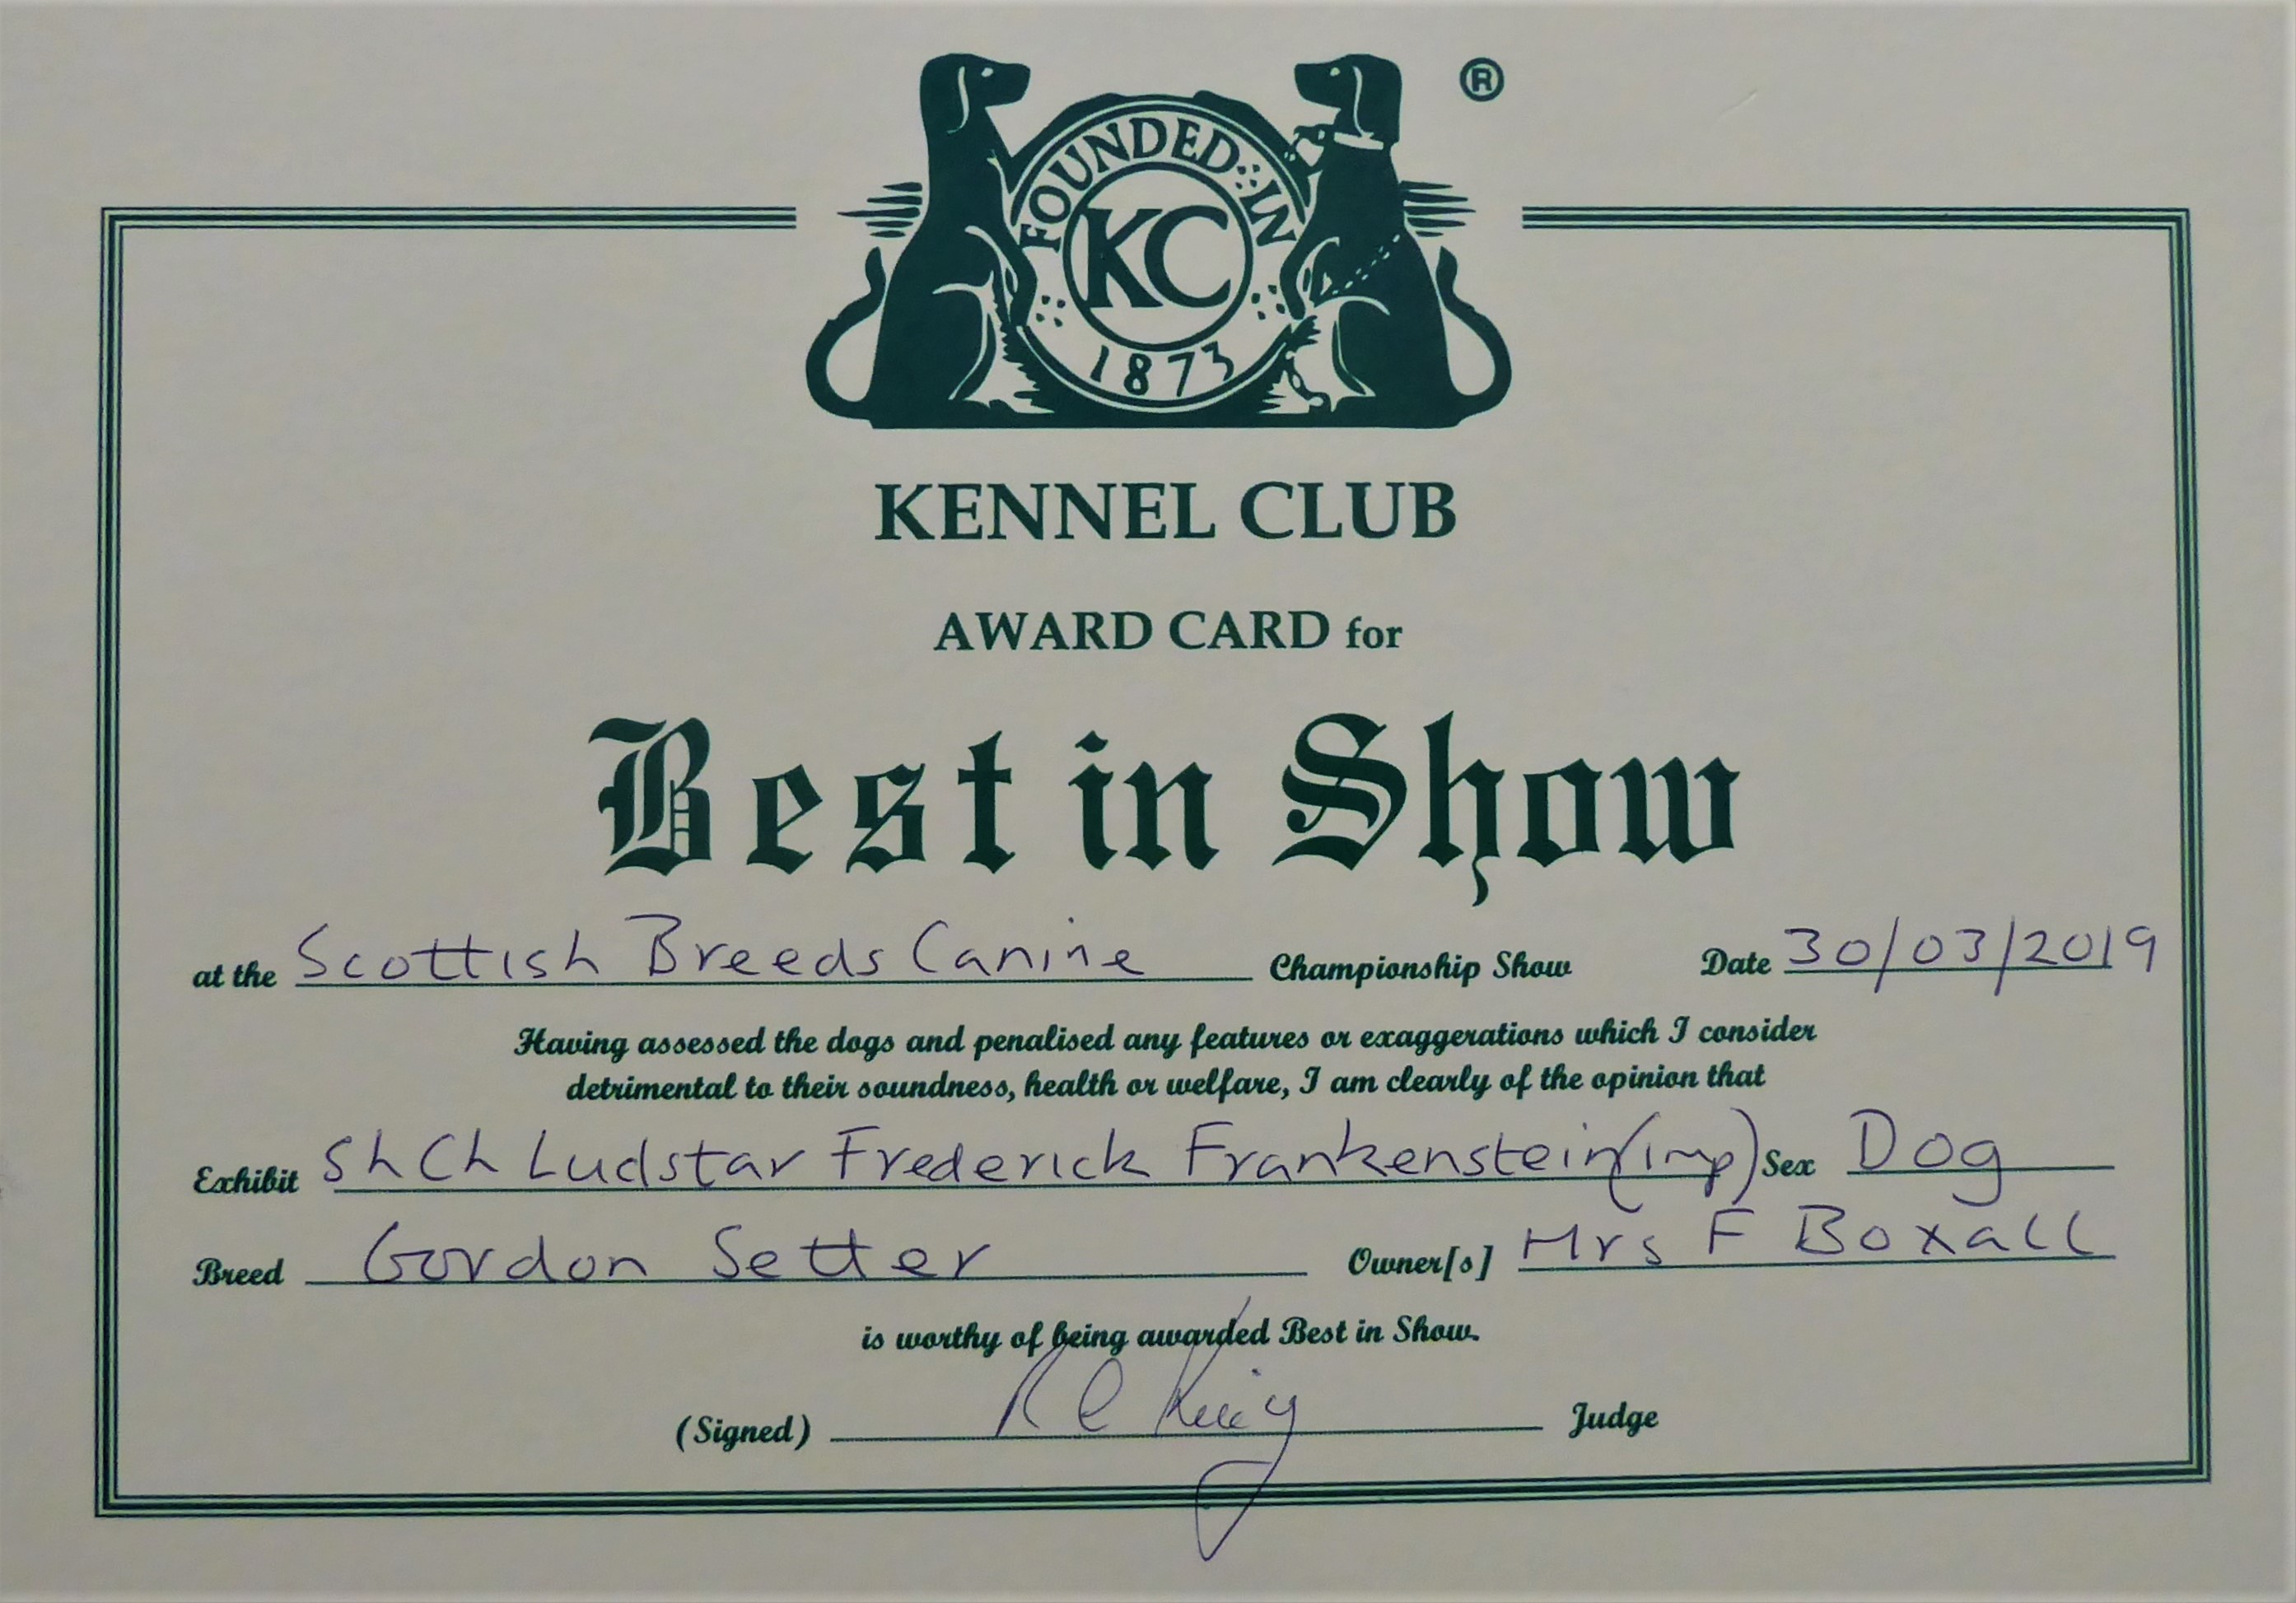 ®
FOUNDED IN
KC
1873
KENNEL CLUB
AWARD CARD for
Best in Show
at the Scottish Breeds Canine Championship Show Date 30/03/2019
Having assessed the dogs and penalised any features or exaggerations which I consider
detrimental to their soundness, health or welfare, I am clearly of the opinion that
Exhibit Sh Ch Ludstar Frederick Frankenstein (imp) Sex Dog
Breed Gordon Setter Owner[s] Mrs F Boxall
is worthy of being awarded Best in Show.
(Signed) Judge